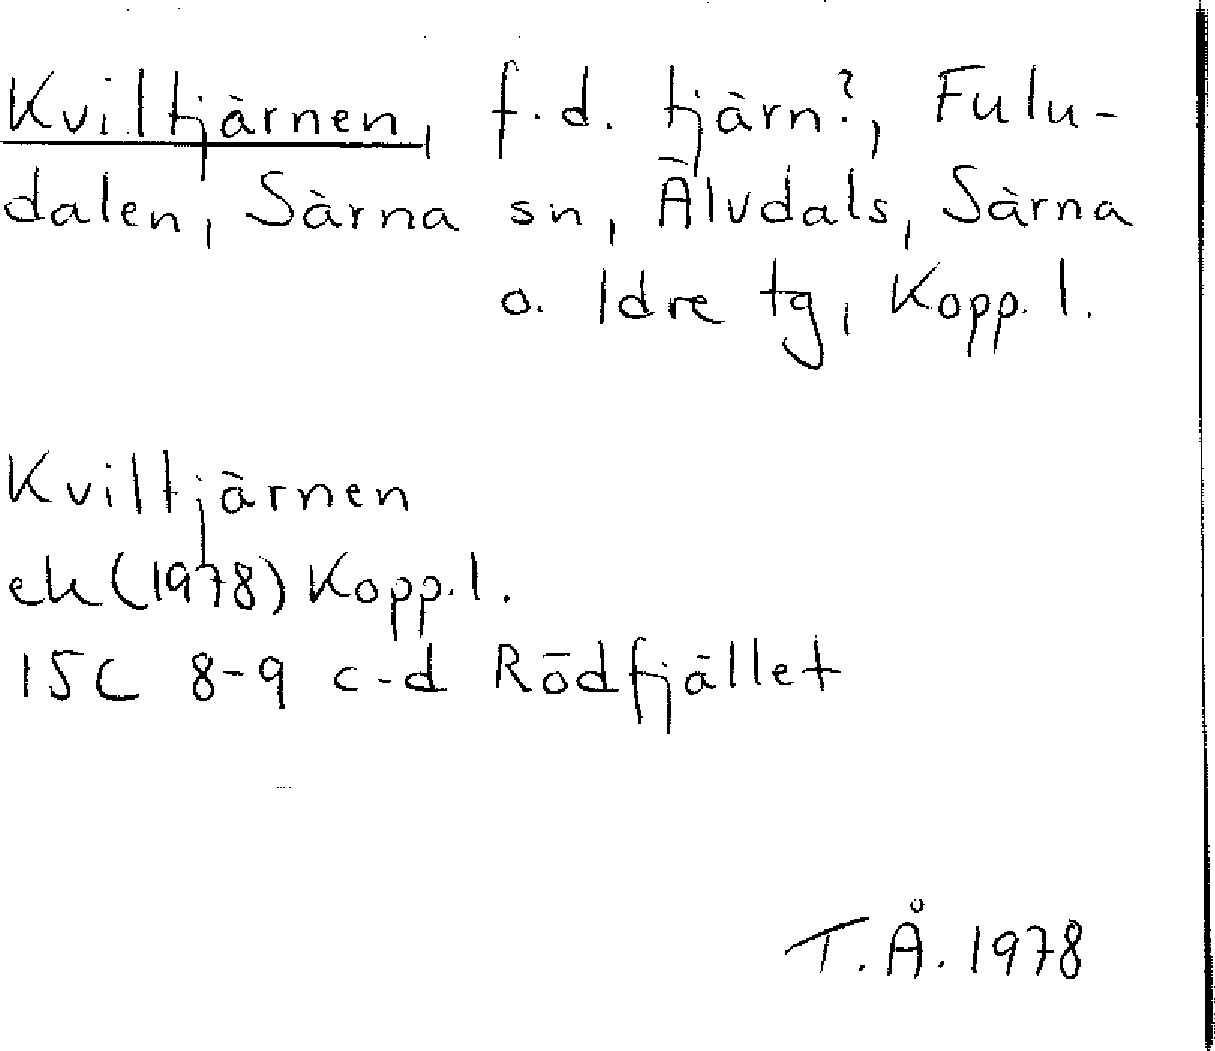 Kviltjärnen, f.d. tjärn?, Fulu-
dalen, Särna sn, Älvdals, Särna
o. Idre tg, Kopp. l.
Kviltjärnen
ek (1978) Kopp. l.
15C 8-9 c-d Rödfjället
T.Å. 1978